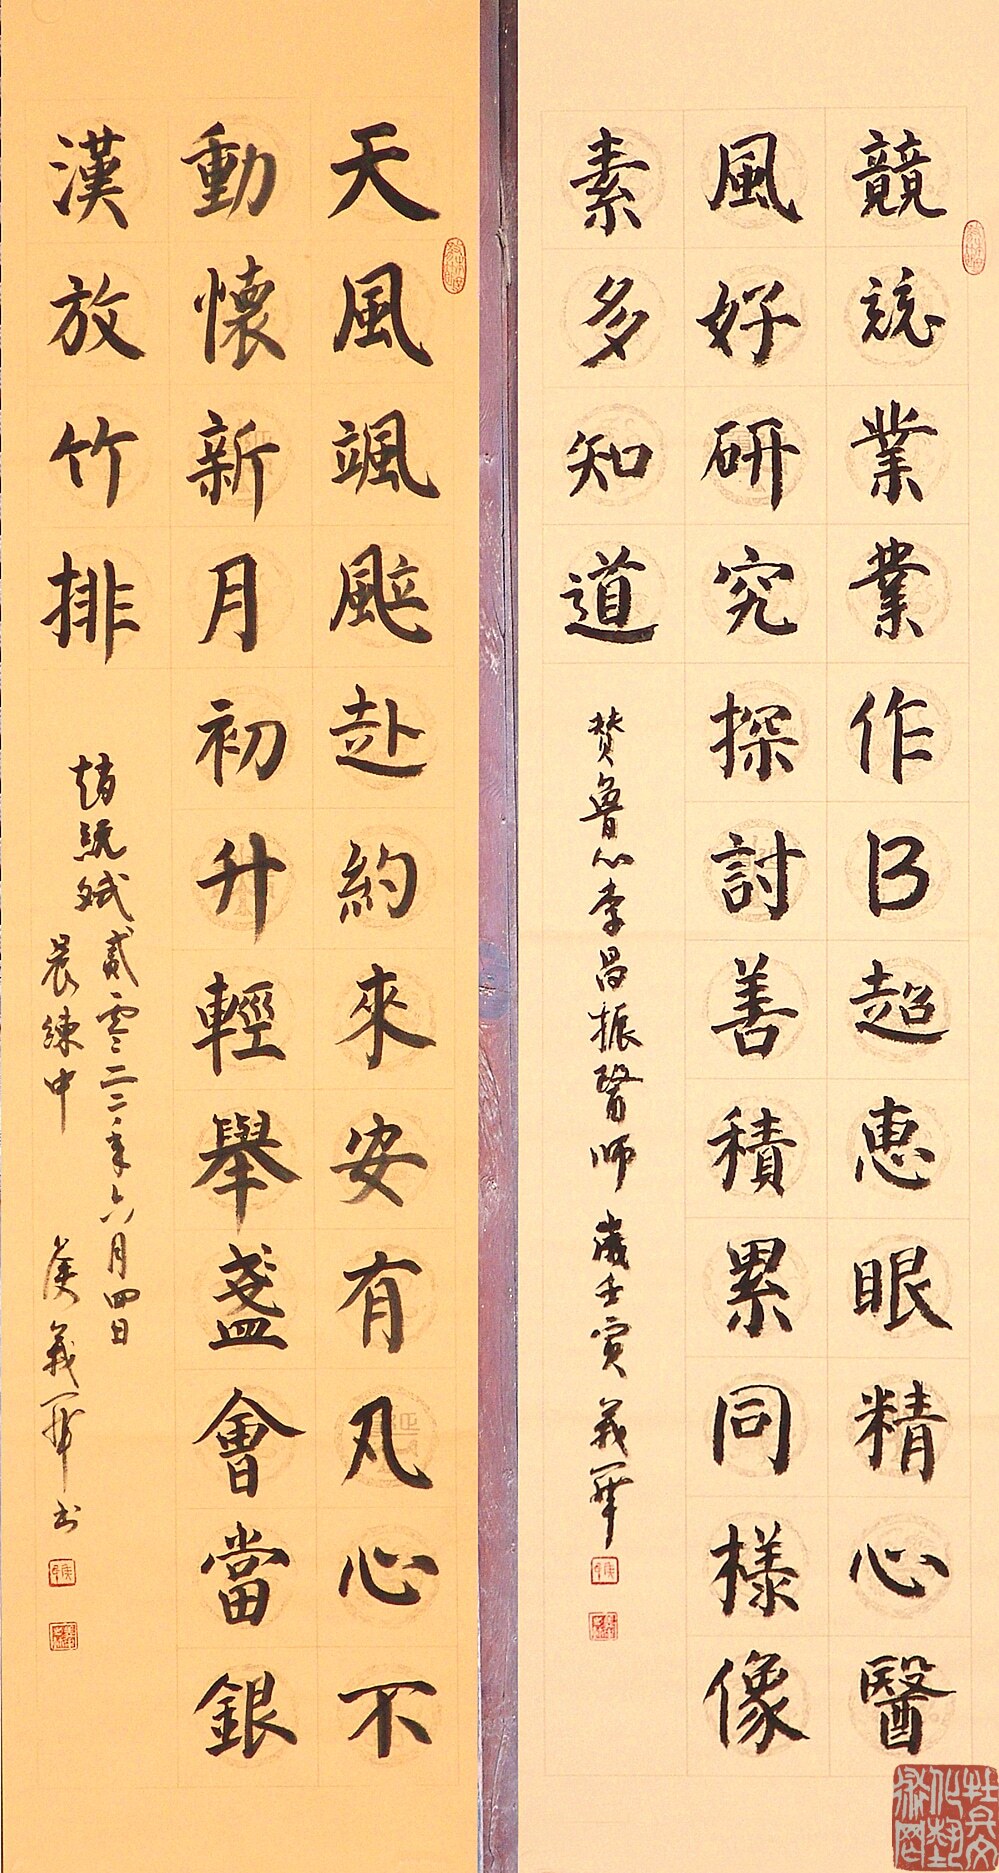 競兢業業作B超惠眼精心醫
風好研究探討善積累同樣像
素多知道
赞魯心李昌振醫師 歲壬寅 義華
天風颯颯赴約來安有凡心不
動懷新月初升輕舉盞會當銀
漢放竹排
趙統斌 貳零二二年六月四日
晨練中 侯義華书